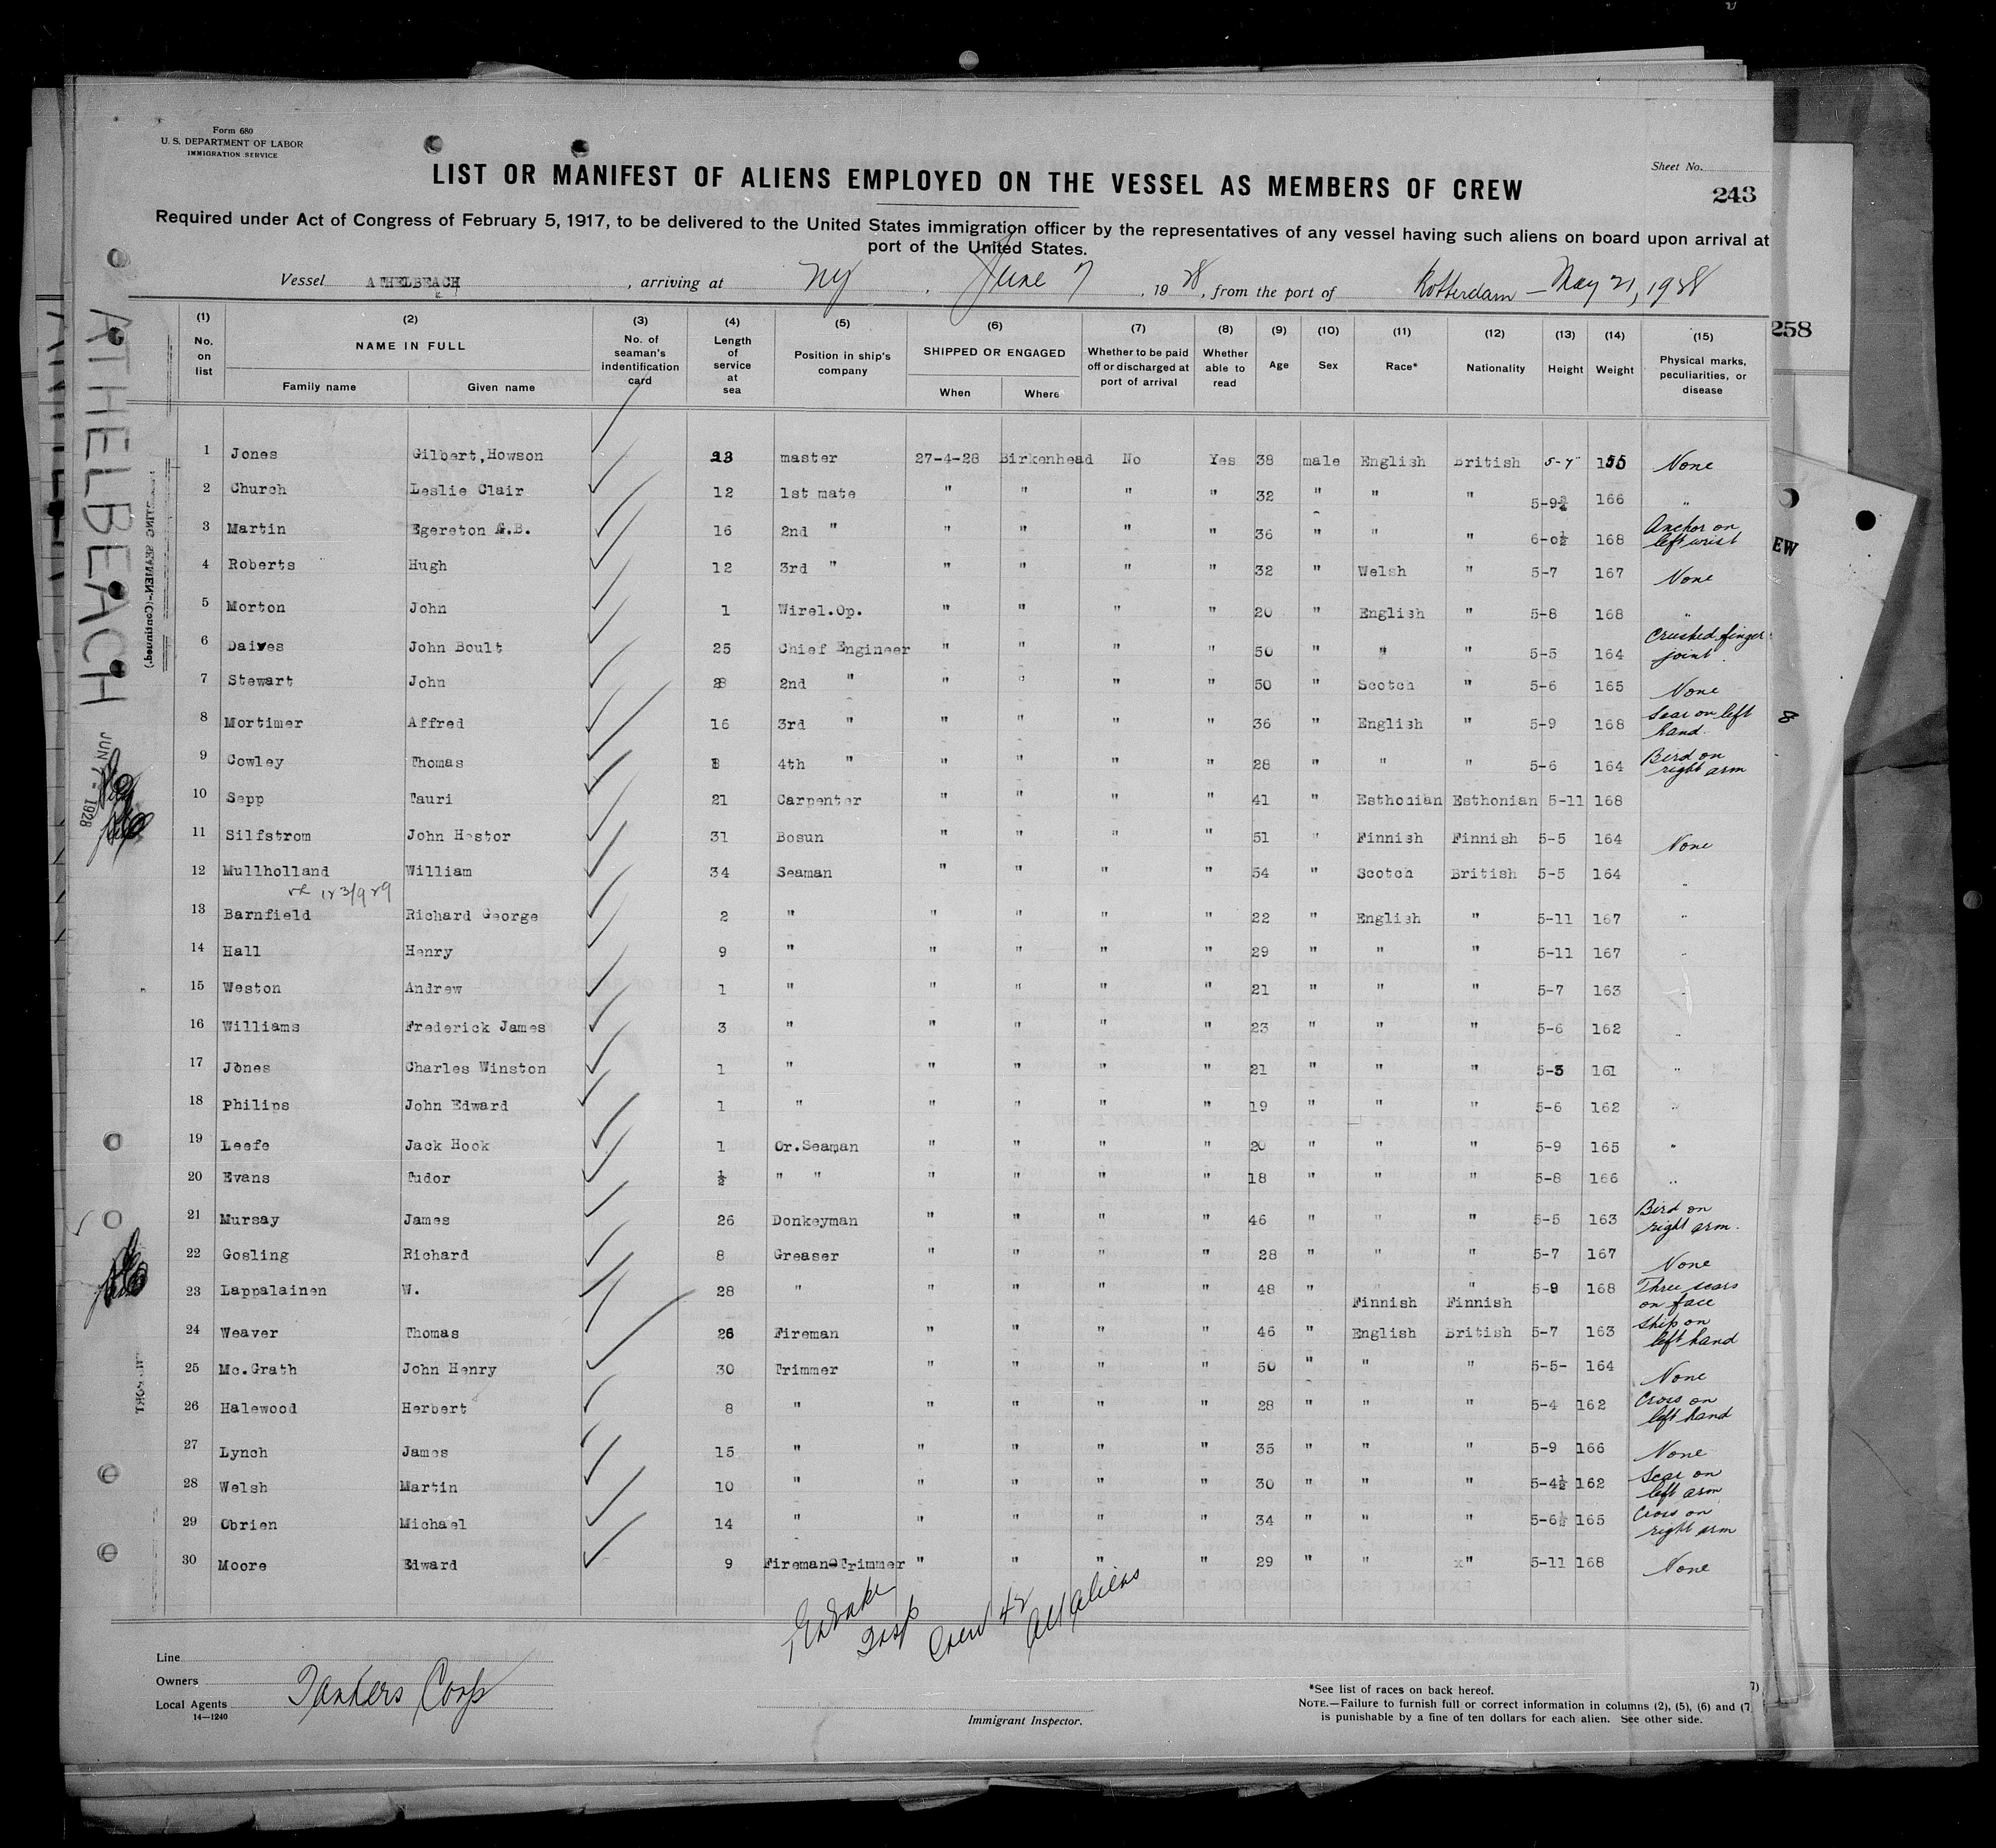 Form 680
U. S. DEPARTMENT OF LABOR
IMMIGRATION SERVICE
LIST OR MANIFEST OF ALIENS EMPLOYED ON THE VESSEL AS MEMBERS OF CREW
Sheet No.
243
Required under Act of Congress of February 5, 1917, to be delivered to the United States immigration officer by the representatives of any vessel having such aliens on board upon arrival at
port of the United States.
Vessel ATHELBEACH, arriving at NY, June 7, 1928, from the port of Rotterdam - May 21, 1928
(1) No. on list (2) NAME IN FULL Family name Given name (3) No. of seaman's indentification card (4) Length of service at sea (5) Position in ship's company (6) SHIPPED OR ENGAGED When Where (7) Whether to be paid off or discharged at port of arrival (8) Whether able to read (9) Age (10) Sex (11) Race* (12) Nationality (13) Height (14) Weight (15) Physical marks, peculiarities, or disease
1 Jones Gilbert,Howson 23 master 27-4-28 Birkenhead No Yes 38 male English British 5-7 155 None
2 Church Leslie Clair 12 1st mate " " " " 32 " " " 5-9¾ 166 "
3 Martin Egereton G.B. 16 2nd " " " " " 36 " " " 6-0½ 168 Anchor on left wrist
4 Roberts Hugh 12 3rd " " " " " 32 " Welsh " 5-7 167 None
5 Morton John 1 Wirel.Op. " " " " 20 " English " 5-8 168 "
6 Daives John Boult 25 Chief Engineer " " " " 50 " " " 5-5 164 Crushed finger joint.
7 Stewart John 28 2nd " " " " " 50 " Scotch " 5-6 165 None
8 Mortimer Affred 16 3rd " " " " " 36 " English " 5-9 168 Scar on left hand.
9 Cowley Thomas 8 4th " " " " " 28 " " " 5-6 164 Bird on right arm
10 Sepp Tauri 21 Carpenter " " " " 41 " Esthonian Esthonian 5-11 168
11 Silfstrom John Hestor 31 Bosun " " " " 51 " Finnish Finnish 5-5 164 None
12 Mullholland William 34 Seaman " " " " 54 " Scotch British 5-5 164 "
13 Barnfield Richard George 2 " " " " " 22 " English " 5-11 167 "
14 Hall Henry 9 " " " " " 29 " " " 5-11 167 "
15 Weston Andrew 1 " " " " " 21 " " " 5-7 163 "
16 Williams Frederick James 3 " " " " " 23 " " " 5-6 162 "
17 Jones Charles Winston 1 " " " " " 21 " " " 5-5 161 "
18 Philips John Edward 1 " " " " " 19 " " " 5-6 162 "
19 Leefe Jack Hook 1 Or.Seaman " " " " 20 " " " 5-9 165 "
20 Evans Tudor ½ " " " " " " 18 " " " 5-8 166 "
21 Mursay James 26 Donkeyman " " " " 46 " " " 5-5 163 Bird on right arm.
22 Gosling Richard 8 Greaser " " " " 28 " " " 5-7 167 None
23 Lappalainen W. 28 " " " " " 48 " Finnish Finnish 5-9 168 Three scars on face
24 Weaver Thomas 26 Fireman " " " " 46 " English British 5-7 163 Ship on left hand
25 Mc.Grath John Henry 30 Trimmer " " " " 50 " " " 5-5- 164 None
26 Halewood Herbert 8 " " " " " 28 " " " 5-4 162 Cross on left hand
27 Lynch James 15 " " " " " 35 " " " 5-9 166 None
28 Welsh Martin 10 " " " " " 30 " " " 5-4½ 162 Scar on left arm
29 Obrien Michael 14 " " " " " 34 " " " 5-6½ 165 Cross on right arm
30 Moore Edward 9 Fireman-Trimmer " " " " 29 " " x" 5-11 168 None
Insp Crew 42 All Aliens
Line
Owners
Local Agents Tankers Corp
14—1240
Immigrant Inspector.
*See list of races on back hereof.
NOTE.—Failure to furnish full or correct information in columns (2), (5), (6) and (7)
is punishable by a fine of ten dollars for each alien. See other side.
ATHELBEACH
JUN 7 - 1928
258
EW
8